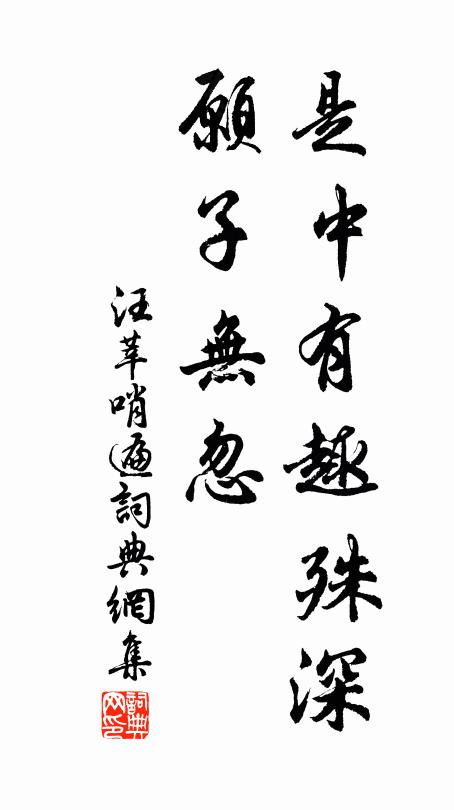 是中有趣殊深
願子無忽
汪莘哨遍詞典網集
詞典網印